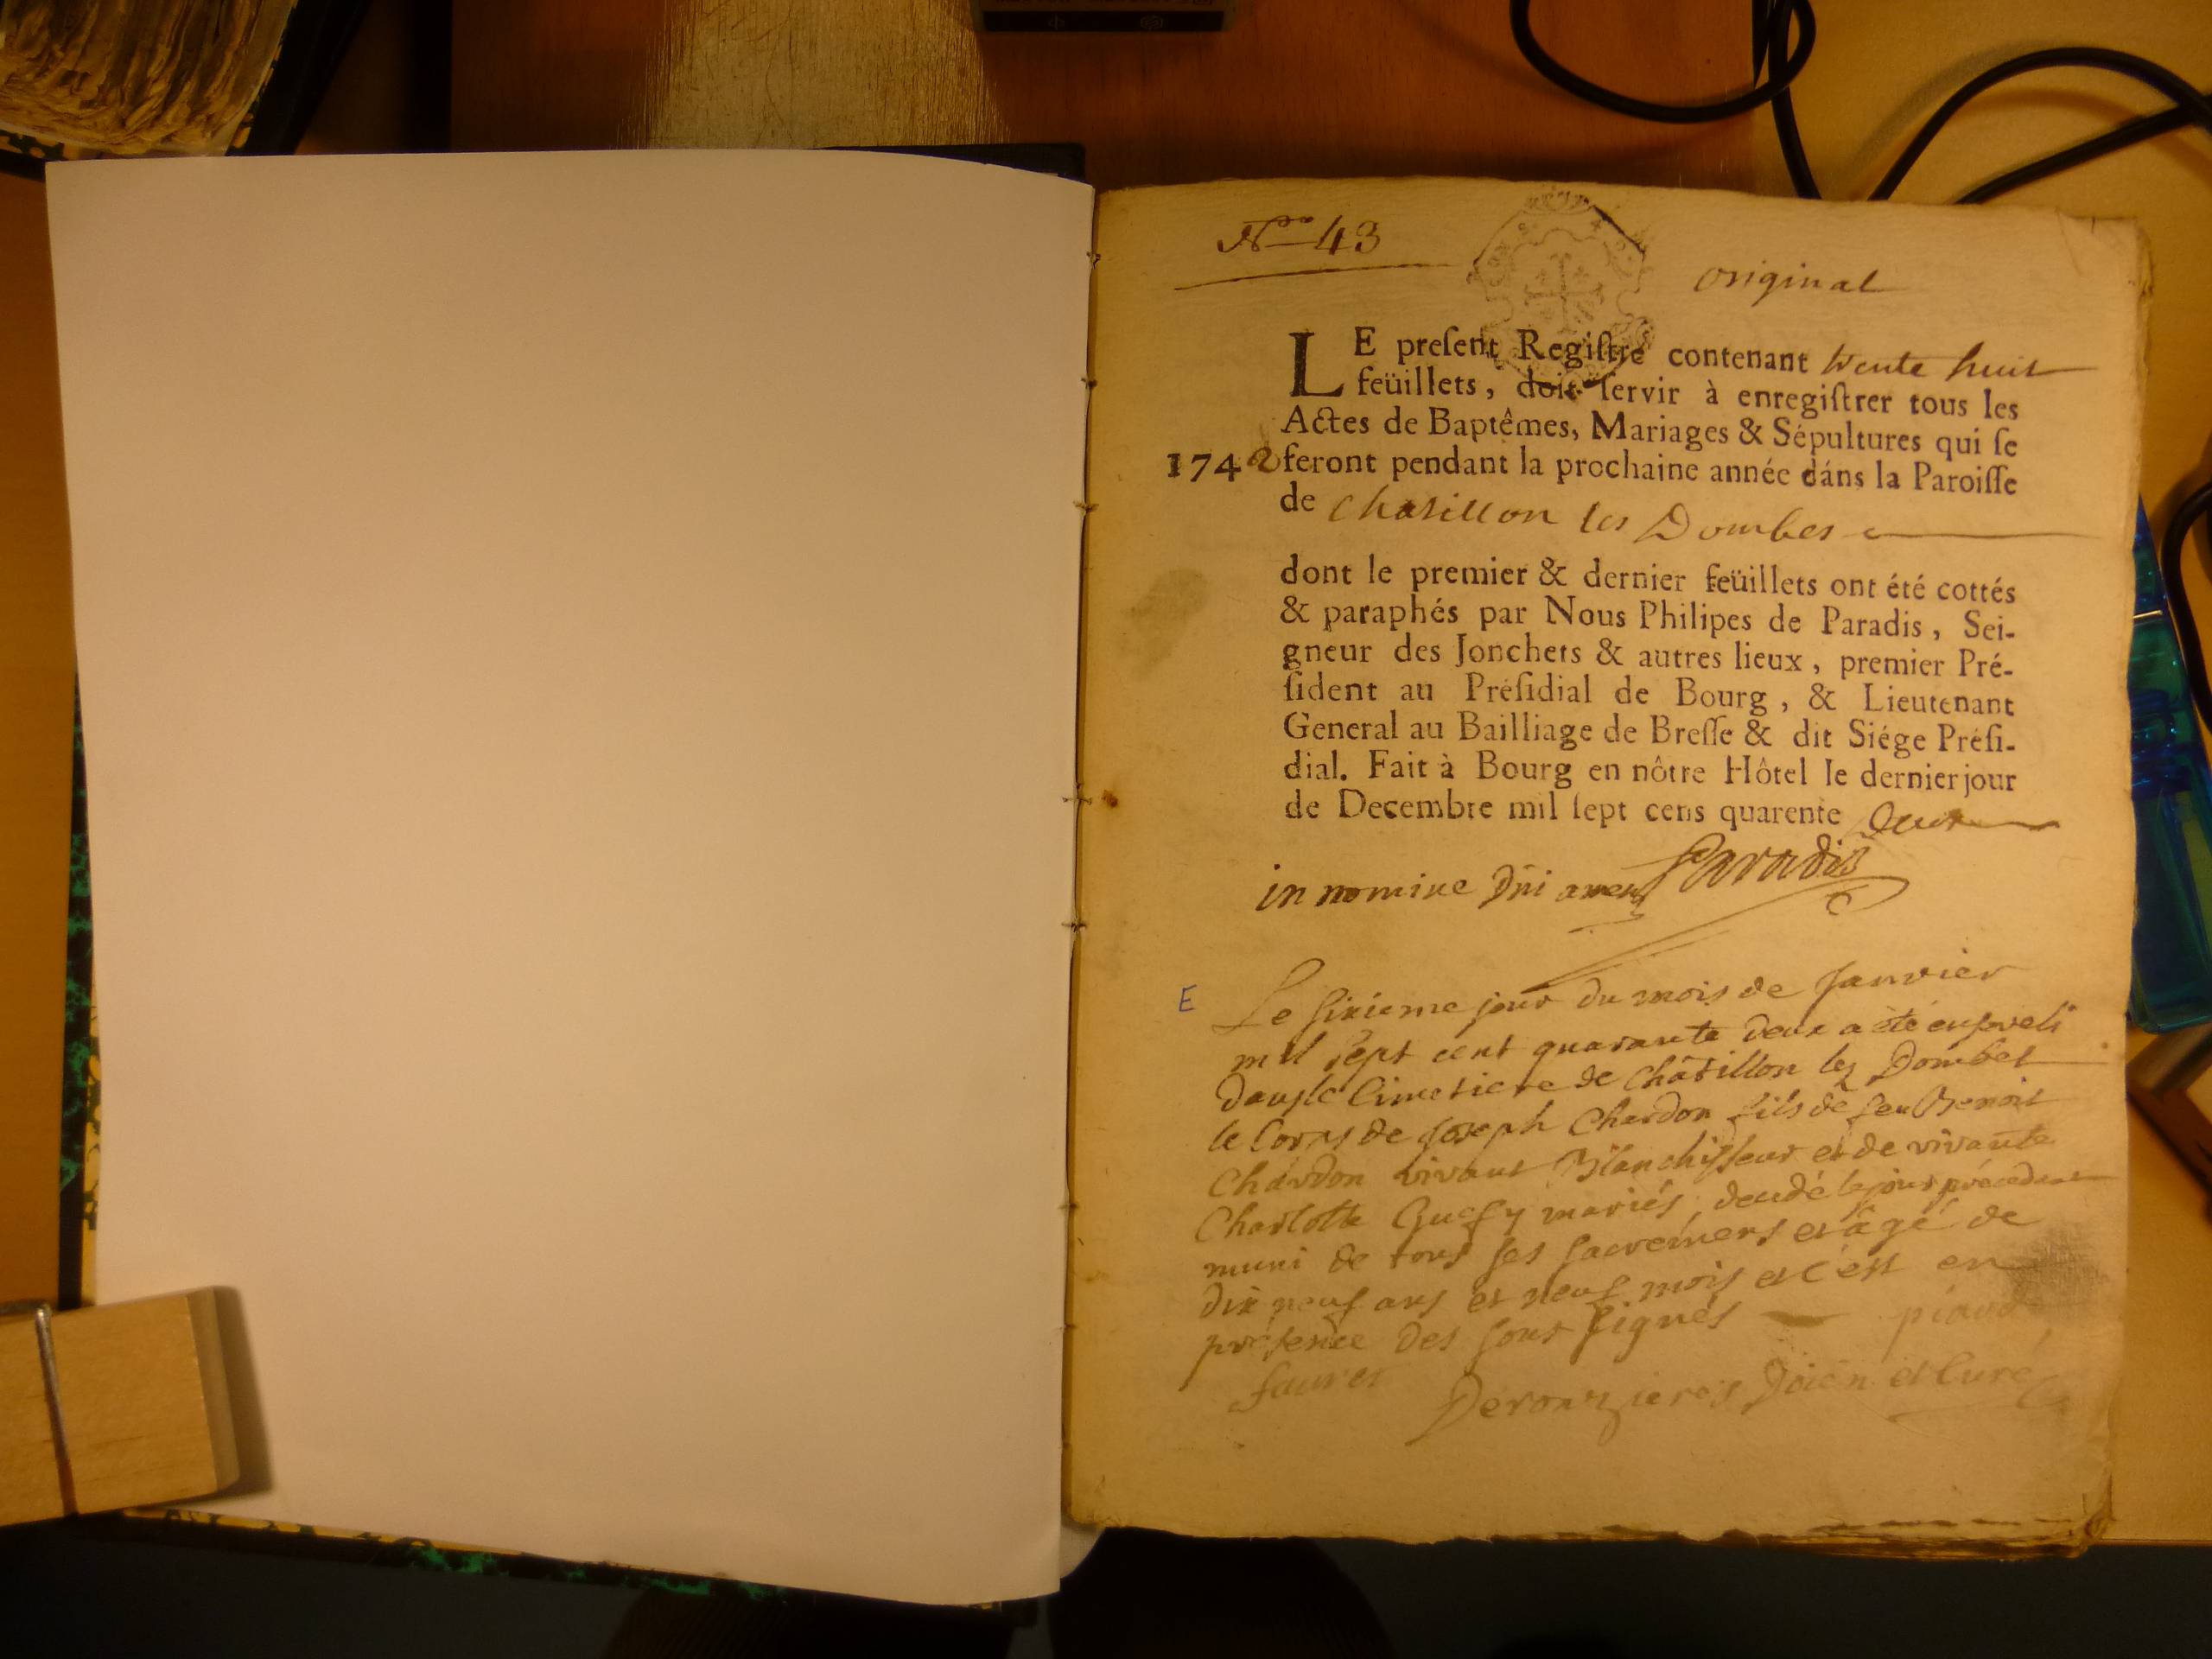 Nro 43
original
LE preſent Regiſtre contenant trente huit
feüillets, doit ſervir à enregiſtrer tous les
Actes de Baptêmes, Mariages & Sépultures qui ſe
1742 feront pendant la prochaine année dáns la Paroiſſe
de Chatillon les Dombes
dont le premier & dernier feüillets ont été cottés
& paraphés par Nous Philipes de Paradis, Sei-
gneur des Jonchets & autres lieux, premier Pré-
ſident au Préſidial de Bourg, & Lieutenant
General au Bailliage de Breſſe & dit Siége Préſi-
dial. Fait à Bourg en nôtre Hôtel le dernier jour
de Decembre mil ſept cens quarente
in nomine Dñi amen Paradis
E
Le sixieme jour du mois de Janvier
mil sept cent quarante deux a été enseveli
dans le Cimetiere de Châtillon lez Dombes
le Corps de Joseph Chardon fils de feu Benoit
Chardon vivant Blanchisseur et de vivante
Charlotte Guefy mariés, decedé le jour précedent
muni de tous ses sacremens et âgé de
dix neuf ans et neuf mois et c'est en
présence des sous signés piaud
fauret Derouzieres Doien et Curé